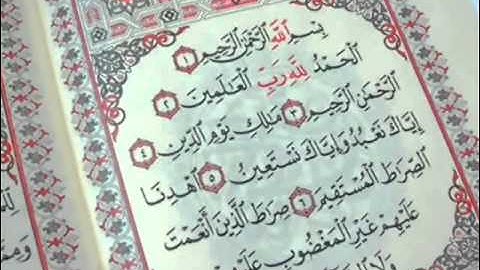 بِسْمِ اللَّهِ الرَّحْمَٰنِ الرَّحِيمِ ١
الْحَمْدُ لِلَّهِ رَبِّ الْعَٰلَمِينَ ٢
الرَّحْمَٰنِ الرَّحِيمِ ٣ مَٰلِكِ يَوْمِ الدِّينِ ٤
إِيَّاكَ نَعْبُدُ وَإِيَّاكَ نَسْتَعِينُ ٥ اهْدِنَا
الصِّرَٰطَ الْمُسْتَقِيمَ ٦ صِرَٰطَ الَّذِينَ أَنْعَمْتَ
عَلَيْهِمْ غَيْرِ الْمَغْضُوبِ عَلَيْهِمْ
وَلَا